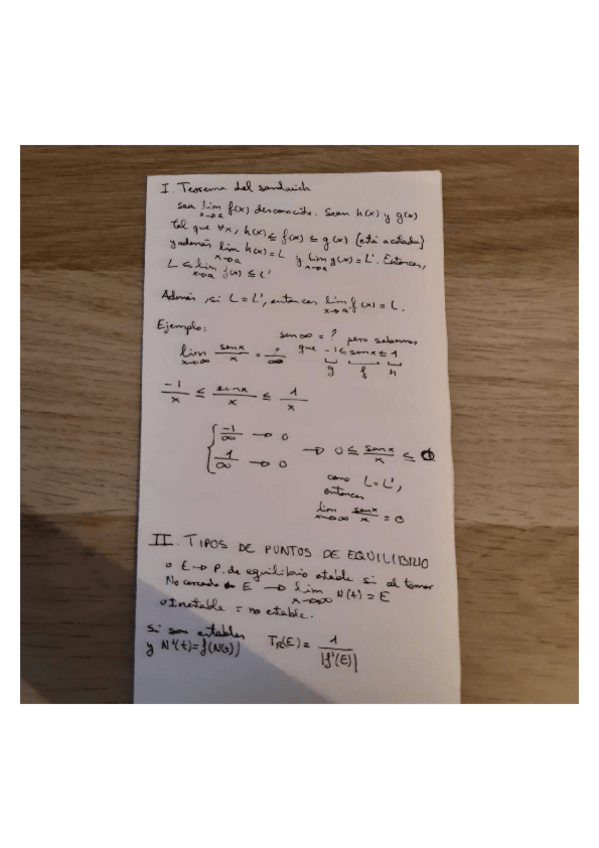 I. Teorema del sandwich
sea lim x→a f(x) desconocido. Sean h(x) y g(x)
tal que ∀x, h(x) ≤ f(x) ≤ g(x) (está acotada)
y además lim x→a h(x) = L y lim x→a g(x) = L'. Entonces,
L ≤ lim x→a f(x) ≤ L'
Además, si L = L', entonces lim x→a f(x) = L.
Ejemplo:
sen ∞ = ? pero sabemos
lim x→∞ senx/x = ?/∞ que -1 ≤ senx ≤ 1
g f h
-1/x ≤ senx/x ≤ 1/x
{ -1/∞ → 0
1/∞ → 0 → 0 ≤ senx/x ≤ 0
como L = L',
entonces
lim x→∞ senx/x = 0
II. TIPOS DE PUNTOS DE EQUILIBRIO
o E → P. de equilibrio estable si al tomar
No cercado E → lim x→∞ N(t) = E
o Inestable = no estable.
si son estables
y N'(t) = f(N(t)) TR(E) = 1/|f'(E)|